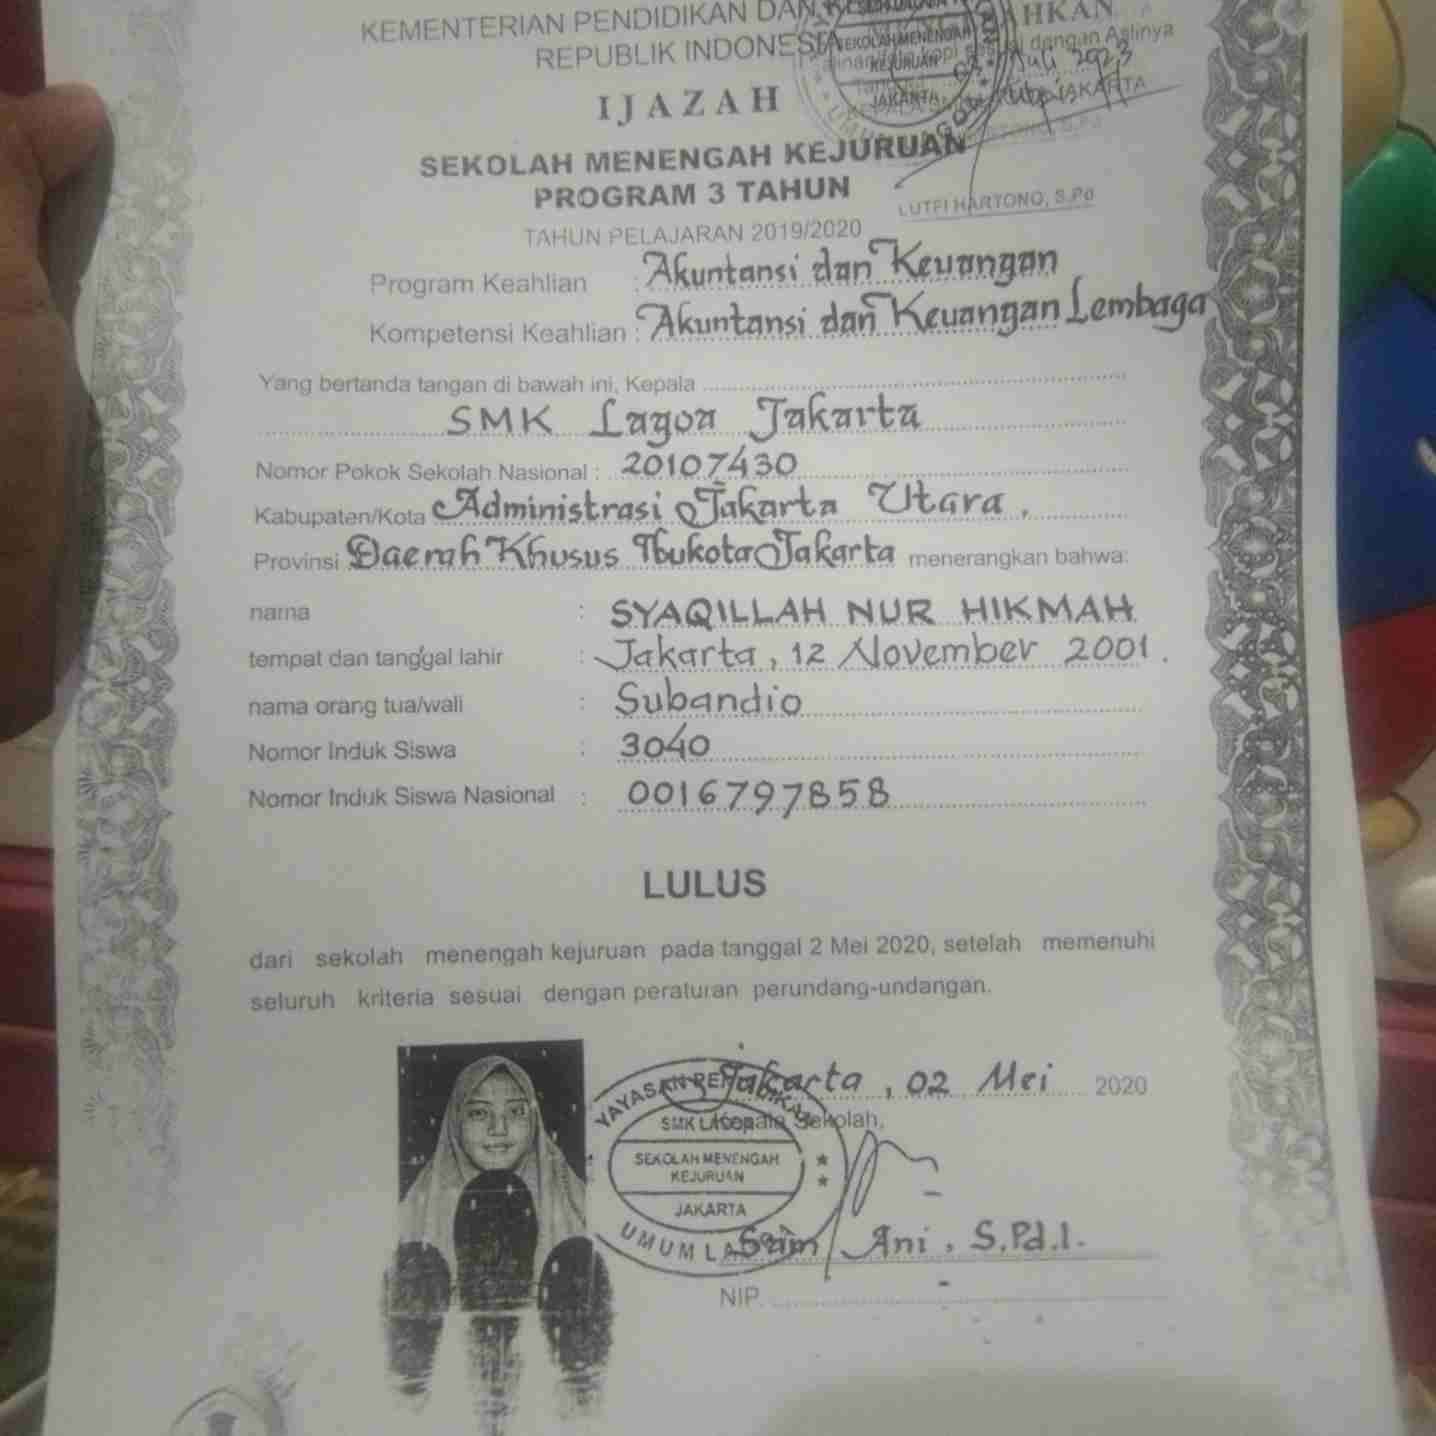 KEMENTERIAN PENDIDIKAN DAN
REPUBLIK INDONESIA
HKAN
kopi dengan Aslinya
Juli 2023
JAKARTA
SEKOLAH MENENGAH
KEJURUAN
JAKARTA
LUTFI HARTONO, S.Pd
IJAZAH
SEKOLAH MENENGAH KEJURUAN
PROGRAM 3 TAHUN
TAHUN PELAJARAN 2019/2020
Program Keahlian : Akuntansi dan Keuangan
Kompetensi Keahlian : Akuntansi dan Keuangan Lembaga
Yang bertanda tangan di bawah ini, Kepala
SMK Lagoa Jakarta
Nomor Pokok Sekolah Nasional : 20107430
Kabupaten/Kota Administrasi Jakarta Utara.
Provinsi Daerah Khusus Ibukota Jakarta menerangkan bahwa:
nama : SYAQILLAH NUR HIKMAH
tempat dan tanggal lahir : Jakarta, 12 November 2001.
nama orang tua/wali : Subandio
Nomor Induk Siswa : 3040
Nomor Induk Siswa Nasional : 0016797858
LULUS
dari sekolah menengah kejuruan pada tanggal 2 Mei 2020, setelah memenuhi
seluruh kriteria sesuai dengan peraturan perundang-undangan.
Jakarta, 02 Mei 2020
Kepala Sekolah,
YAYASAN
SMK LAGOA
SEKOLAH MENENGAH
KEJURUAN
JAKARTA
UMUM
Ani, S.Pd.I.
NIP. -